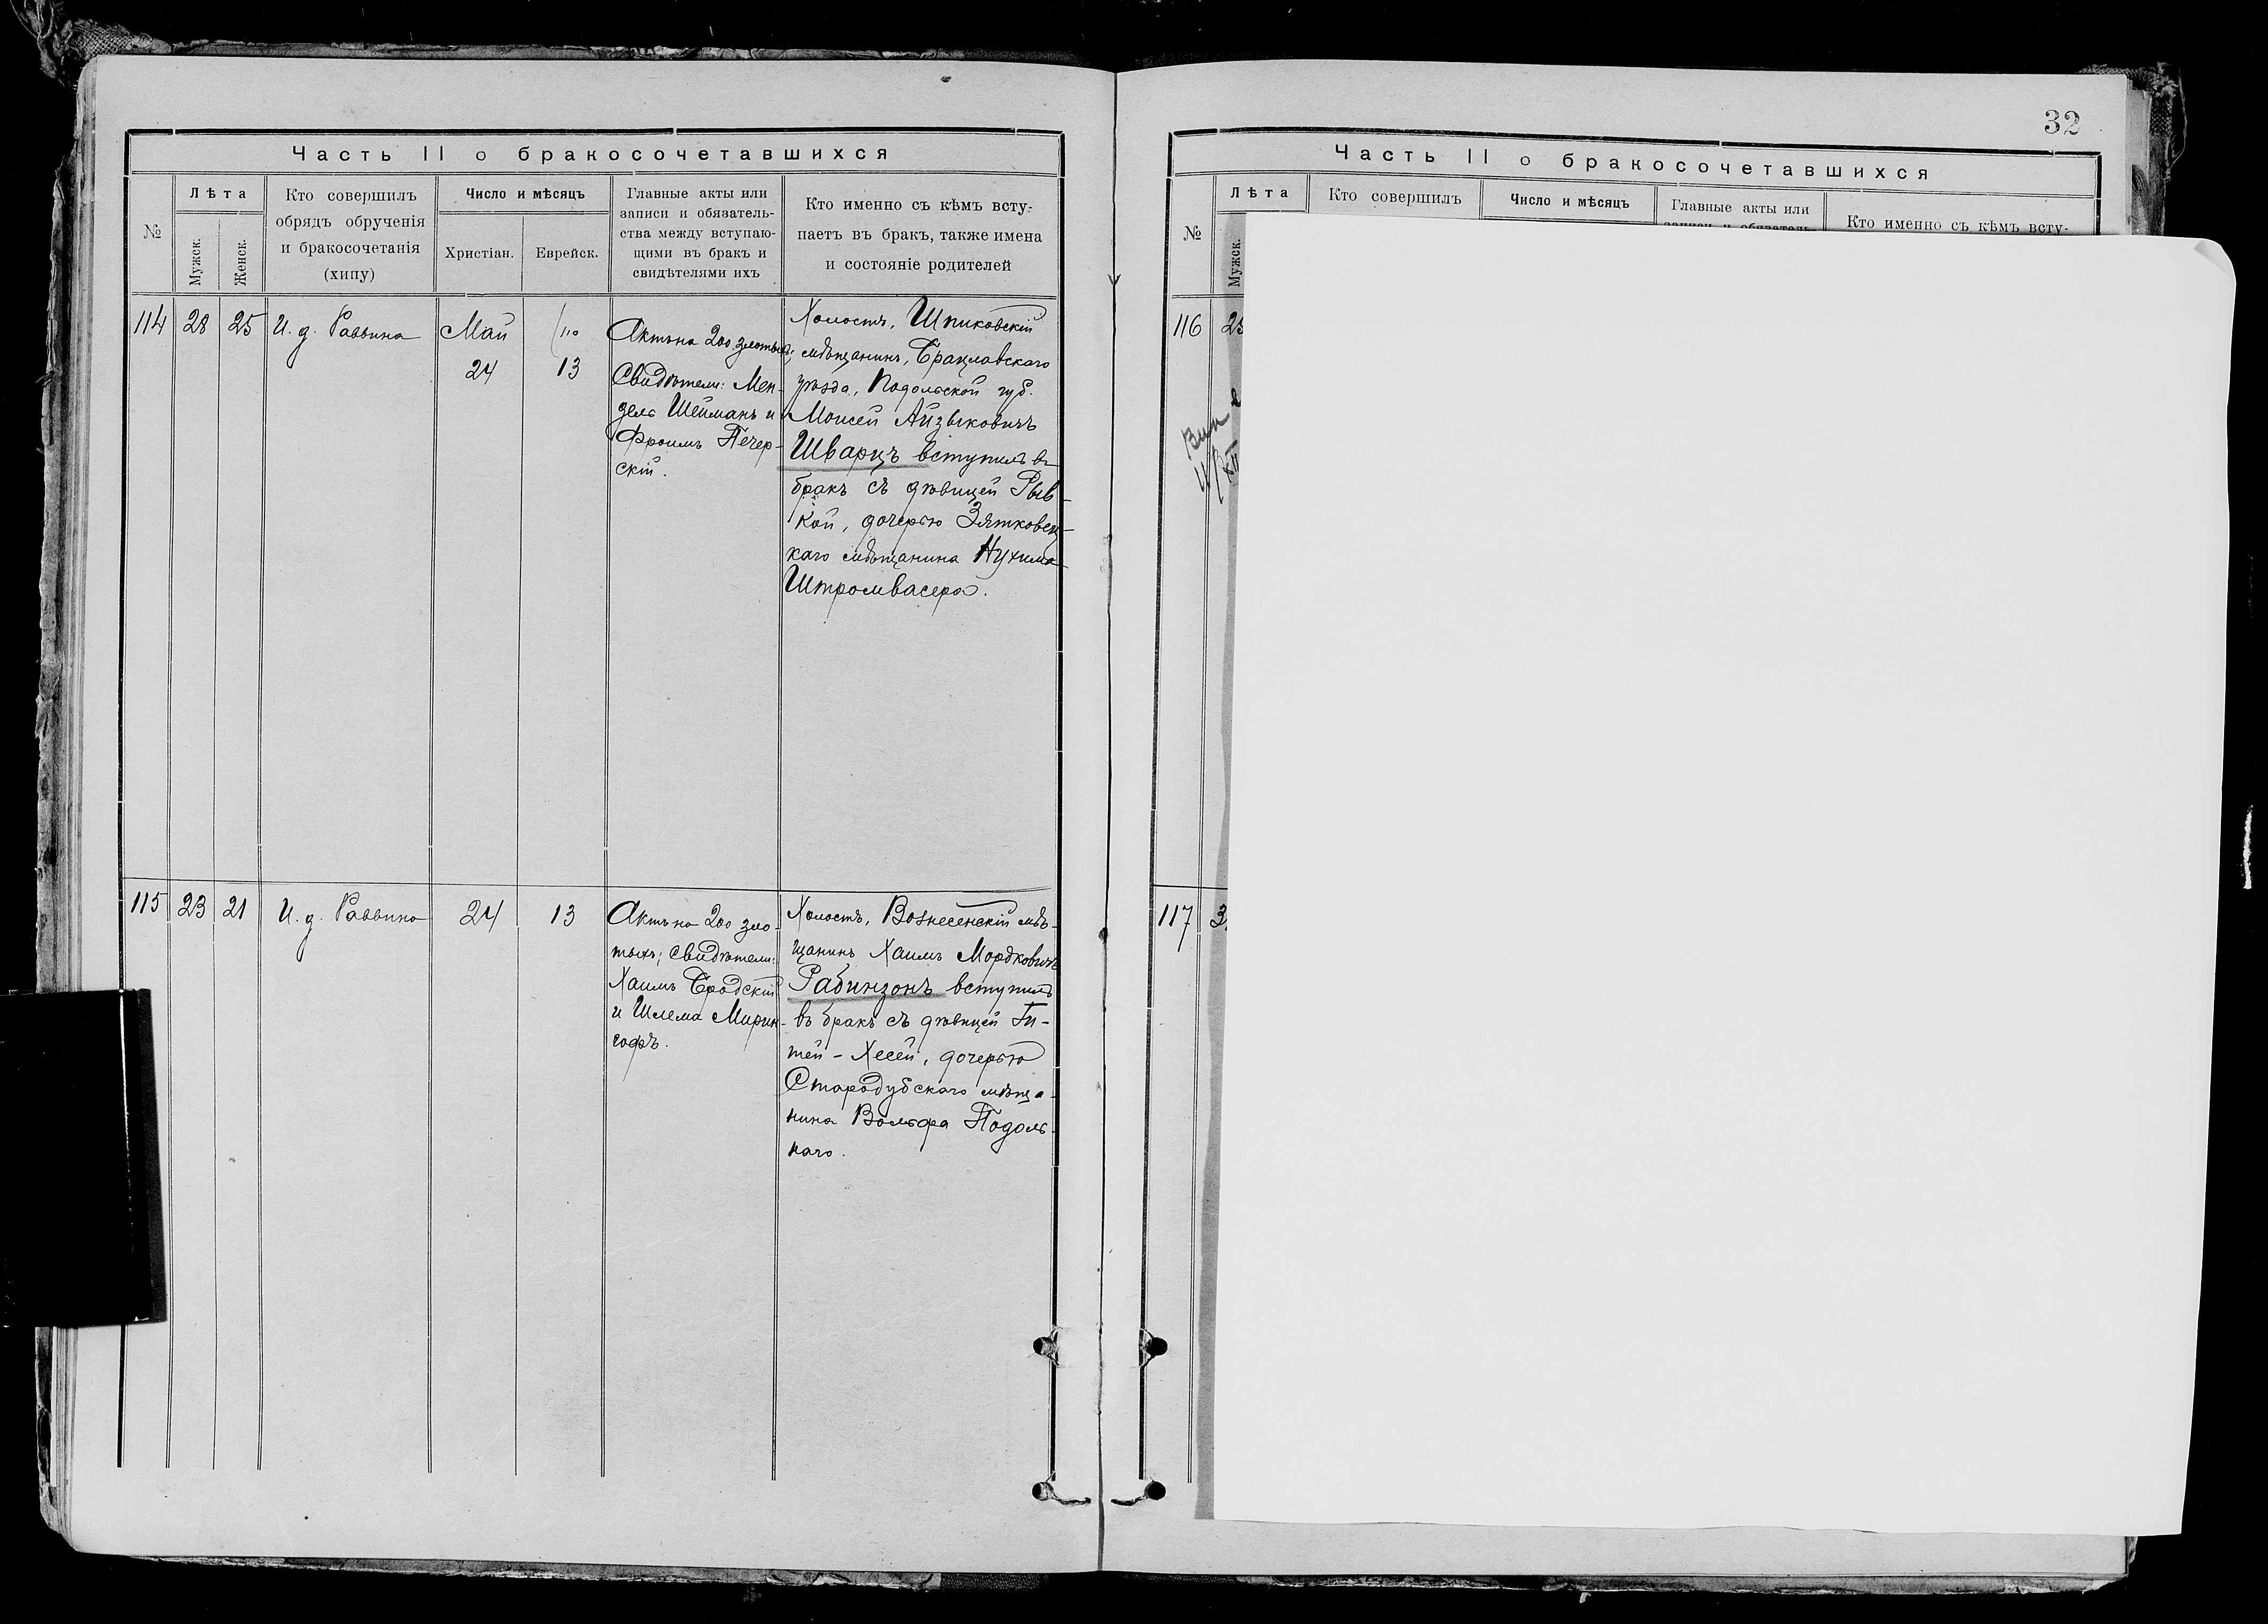 32
Часть II о бракосочетавшихся
№
Лѣта
Мужск.
Женск.
Кто совершилъ
обрядъ обрученія
и бракосочетанія
(хипу)
Число и мѣсяцъ
Христіан.
Еврейск.
Главные акты или
записи и обязатель-
ства между вступаю-
щими въ бракъ и
свидѣтелями ихъ
Кто именно съ кѣмъ всту-
паетъ въ бракъ, также имена
и состояніе родителей
114
28
25
И. д. Раввина
Май
24
13
Актъ на 200 злотыхъ;
Свидѣтели: Мен-
дель Шейманъ и
Фроимъ Печер-
скій.
Холостъ, Шпиковскій
мѣщанинъ, Брацлавскаго
уѣзда, Подольской губ.
Моисей Айзыковичъ
Шварцъ вступилъ въ
бракъ съ дѣвицей Рыв-
кой, дочерью Зятковец-
каго мѣщанина Нухима
Штромвасера.
115
23
21
И. д. Раввина
24
13
Актъ на 200 зло-
тыхъ; Свидѣтели:
Хаимъ Бродскій
и Шлема Мирин-
гофъ.
Холостъ, Вознесенскій мѣ-
щанинъ Хаимъ Мордковичъ
Рабинзонъ вступилъ
въ бракъ съ дѣвицей Ги-
тей-Хесей, дочерью
Стародубскаго мѣща-
нина Вольфа Подоль-
наго.
Часть II о бракосочетавшихся
№
Лѣта
Мужск.
Кто совершилъ
Число и мѣсяцъ
Главные акты или
записи и обязатель-
Кто именно съ кѣмъ всту-
116
117